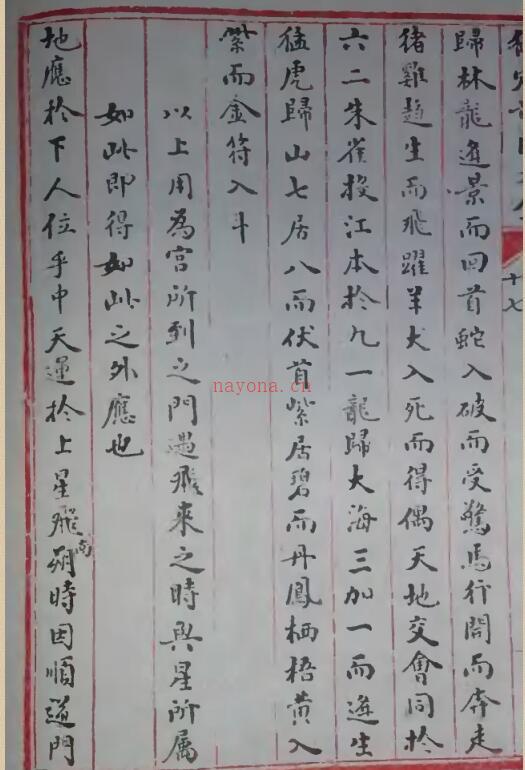 十七
歸林龍遁景而回首蛇入破而受驚馬行開而奔走
猪雞趨生而飛躍羊犬入死而得偶天地交會同於
六二朱雀投江本於九一龍歸大海三加一而遁生
猛虎歸山七居八而伏首紫居碧而丹鳳栖梧黄入
紫而金符入斗
以上用為宮所到之門遇飛來之時與星所属
如此即得如此之外應也
地應於下人位乎中天運於上星飛朔時因順遁門
南
nayona.cn